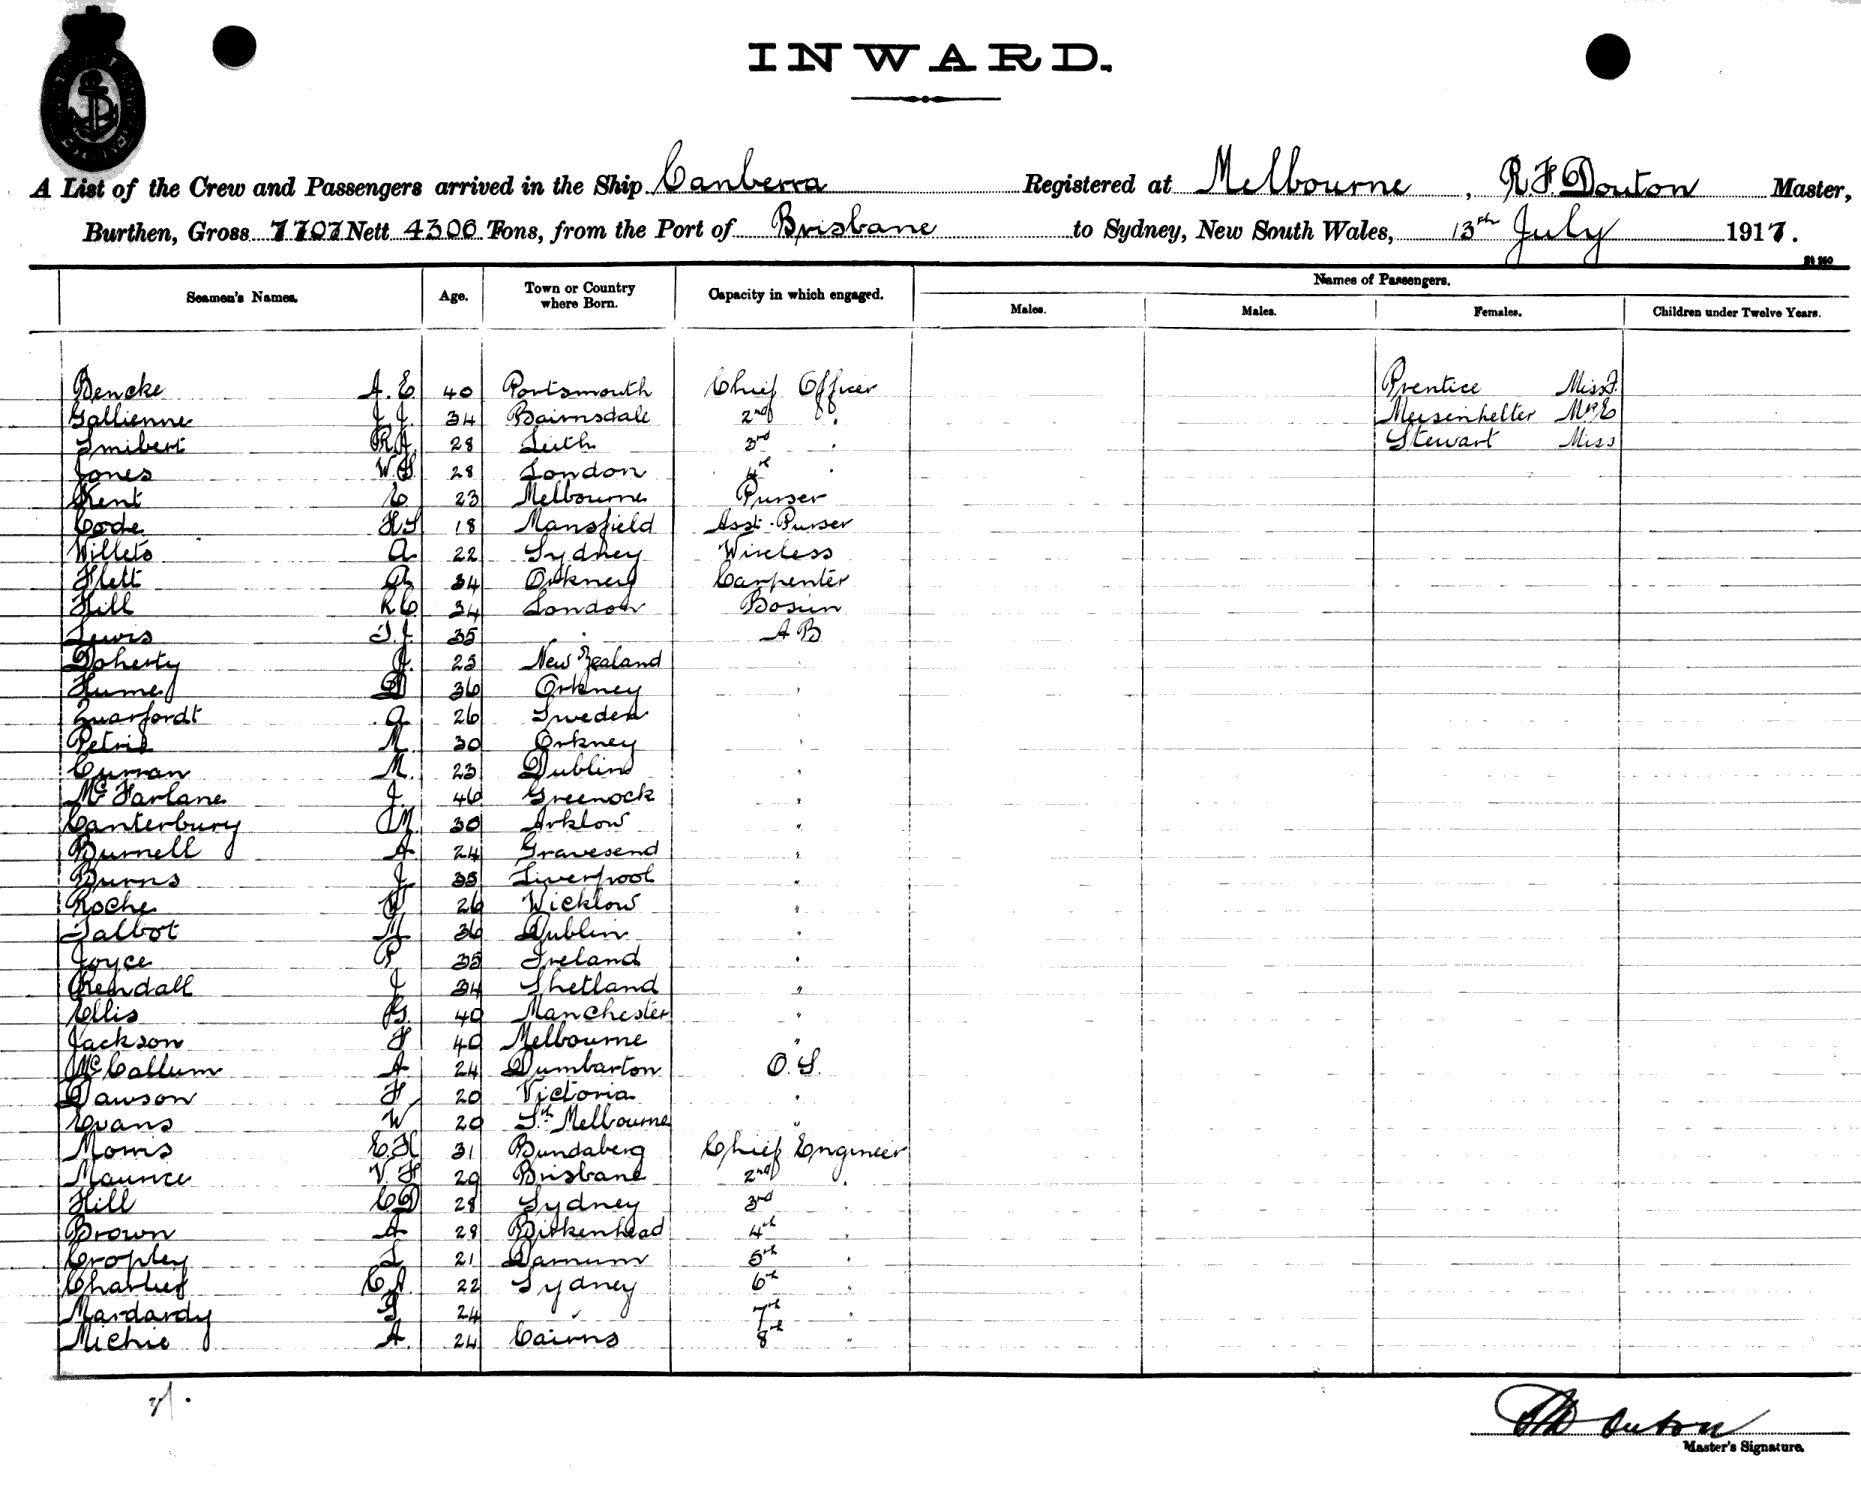 INWARD.
A List of the Crew and Passengers arrived in the Ship Canberra Registered at Melbourne, R F Douton Master,
Burthen, Gross 7707 Nett 4306 Tons, from the Port of Brisbane to Sydney, New South Wales, 13th July 1917.
Names of Passengers.
Seamen's Names. Age. Town or Country where Born. Capacity in which engaged. Males. Males. Females. Children under Twelve Years.
Bencke A. E 40 Portsmouth Chief Officer Prentice Miss
Gallienne J. J. 34 Bairnsdale 2nd " Meisenhelter Mrs E
Smibert R A 28 Leith 3rd " Stewart Miss
Jones 28 London 4th "
Kent E 23 Melbourne Purser
Code H S 18 Mansfield Asst. Purser
Willets A 22 Sydney Wireless
Flett 34 Orkney Carpenter
Hill R C 34 London Bosun
Lewis T. J. 35 " A B
Doherty J. 25 New Zealand "
Hume D 36 Orkney "
Quarfordt A 26 Sweden "
Petrie M. 30 Orkney "
Curran M. 23 Dublin "
McFarlane J. 46 Greenock "
Canterbury 30 Arklow "
Burnell A 24 Gravesend "
Burns J 35 Liverpool "
Roche 26 Wicklow "
Talbot M 36 Dublin "
Joyce P 35 Ireland "
Rendall J 34 Shetland "
Ellis G. 40 Manchester "
Jackson F 40 Melbourne "
McCallum A 24 Dumbarton O. S.
Dawson F 20 Victoria "
Evans W 20 Sth Melbourne "
Morris E. H 31 Bundaberg Chief Engineer
Maurice V. F 29 Brisbane 2nd "
Hill C D 28 Sydney 3rd "
Brown A 28 Birkenhead 4th "
Cropley L 21 Darnum 5th "
Charlier C A 22 Sydney 6th "
Mardardy G 24 " 7th "
Michie A. 24 Cairns 8th "
R F Douton
Master's Signature.